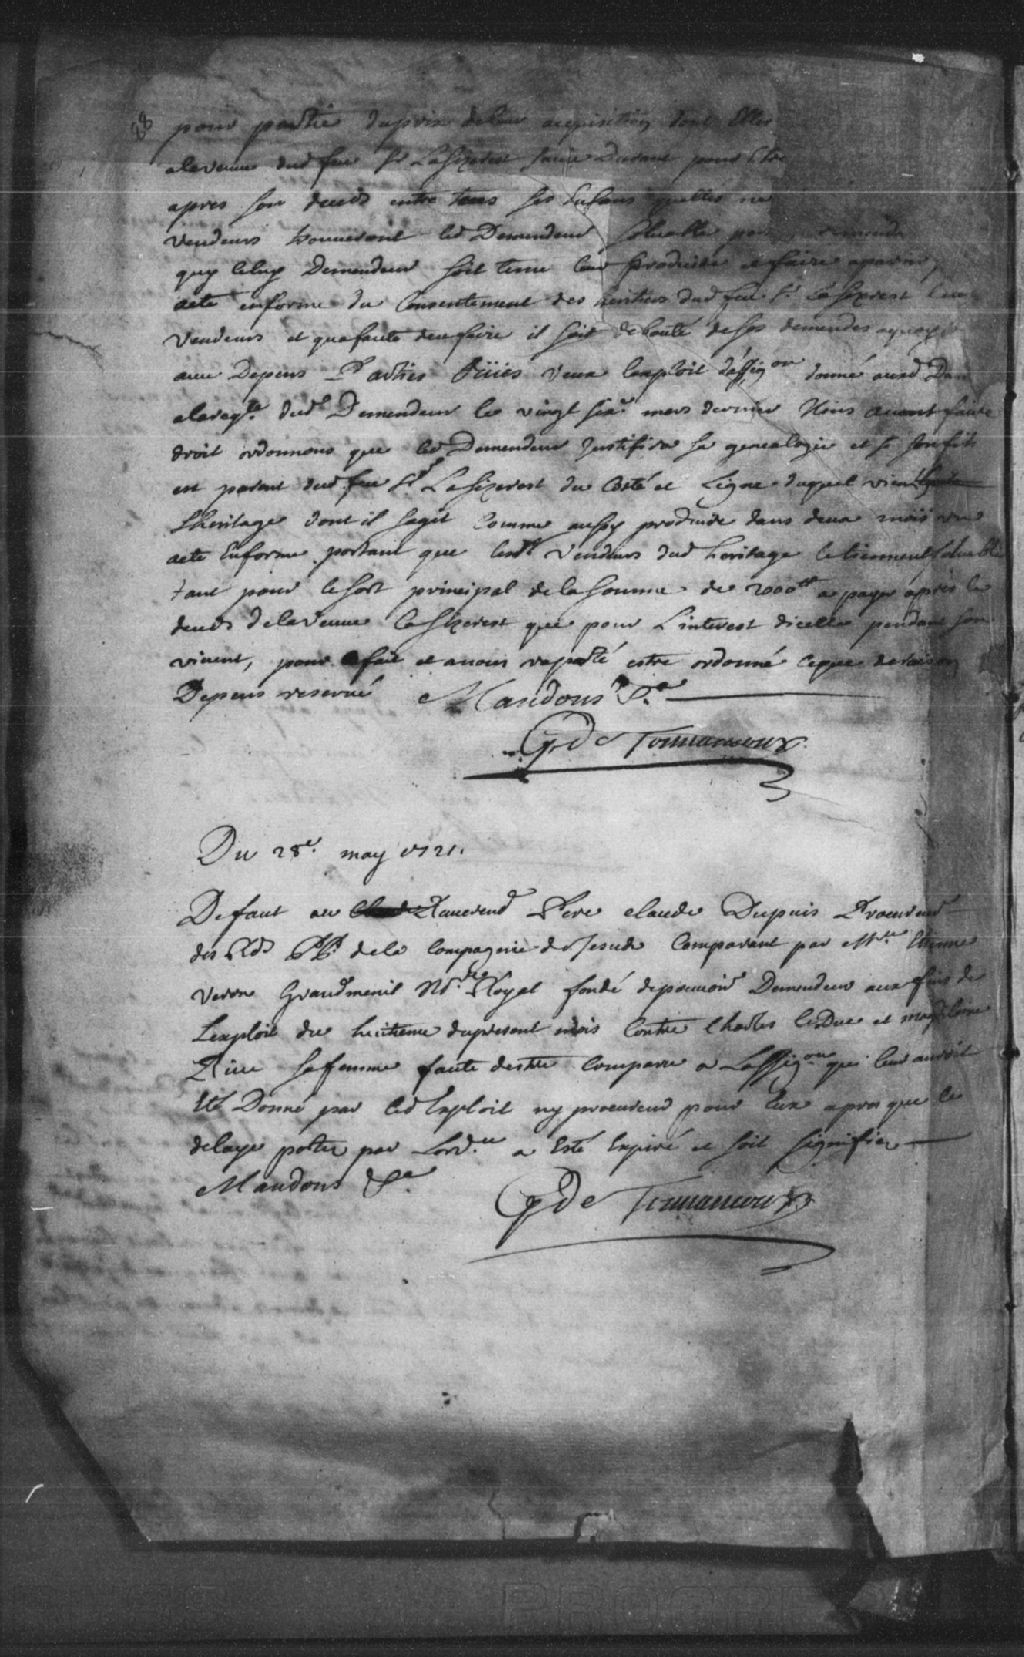 28
pour partie du prix de leur acquisition dont elles
a la veuve dud feu Sr Lasizerest sa vie Durant pour
apres son deceds entre tous ses Enfans
vendeurs trouveront led Demandeur solvable
Demandeur soit tenu leur produire et faire
acte enforme du Consentement des heritiers dud feu Sr Lasizerest
Vendeurs et qua faute deu faire il soit debouté de ses demandes
aux Depens Parties oüies veu lexploit dassigon donné
a la reqte dud Demandeur le vingt six mars dernier Nous avant faire
droit ordonnons que led Demandeur justifira sa genealogie et se
est parant dud feu Sr Lasizerest du Costé et Ligne duquel vient
L'heritage dont il sagit Comme aussy produire dans deux mois une
acte Enforme portant que lesdt Vendeurs dud heritage le tiennent solvable
tant pour le sort principal de la somme de 2000tt a payer apres le
deceds de la Veuve Lasizerest que pour L'interest dicelle pendant son
vivant, pour ce fait et a nous raporté estre ordonné ce que de raison
Depens reservé Mandons &a
G De Tonnancour
Du 28e may 1721.
Defaut au Reverend Pere claude Dupuis Procureur
des Rds PP de la Compagnie de Jesuds Comparant par Mtre Etienne
Veron Grandmenil Nore Royal fondé de pouvoir Demandeur aux fins de
Lexploit du huitieme du present mois Contre Charles LeDuc et
sa femme faute destre Comparu a Lassigon qui leur auroit
Esté Donné par led Exploit ny procureur pour Eux apres que le
delaye porter par Lordce a Esté Expiré et soit signifier
Mandons &a
G De Tonnancour